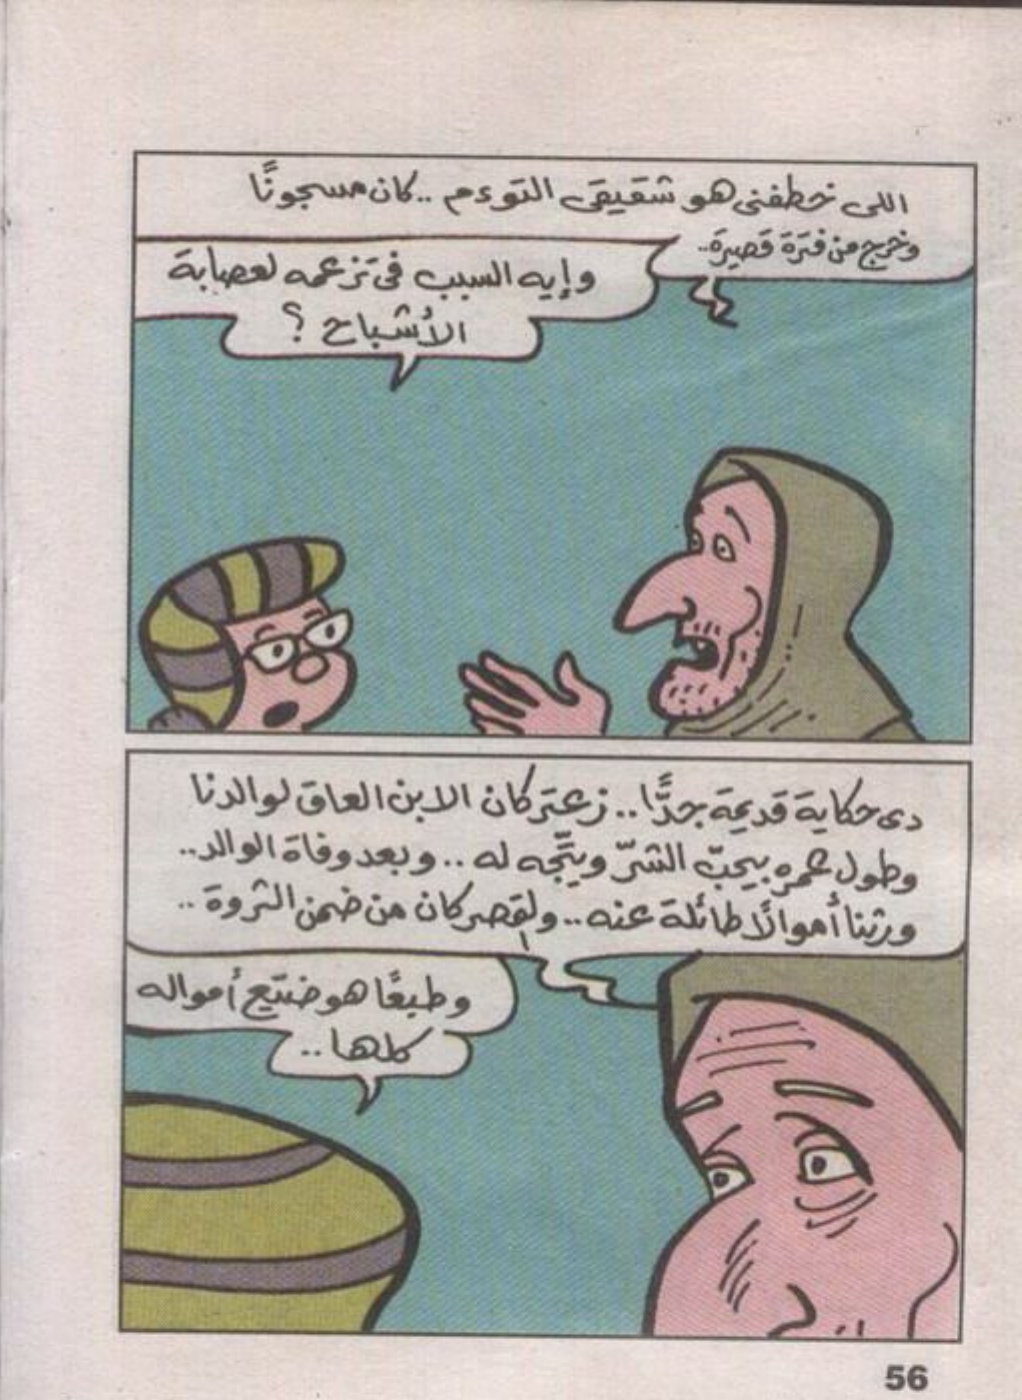 اللى خطفنى هو شقيقى التوءم .. كان مسجونًا
وخرج من فترة قصيرة..
وإيه السبب فى تزعمه لعصابة
الأشباح ؟
دى حكاية قديمة جدًّا .. زعتر كان الابن العاق لوالدنا
وطول عمره بيحبّ الشرّ ويتّجه له .. وبعد وفاة الوالد..
ورثنا أموالًا طائلة عنه .. ولقصر كان من ضمن الثروة ..
وطبعًا هو ضيّع أمواله
كلها ..
56